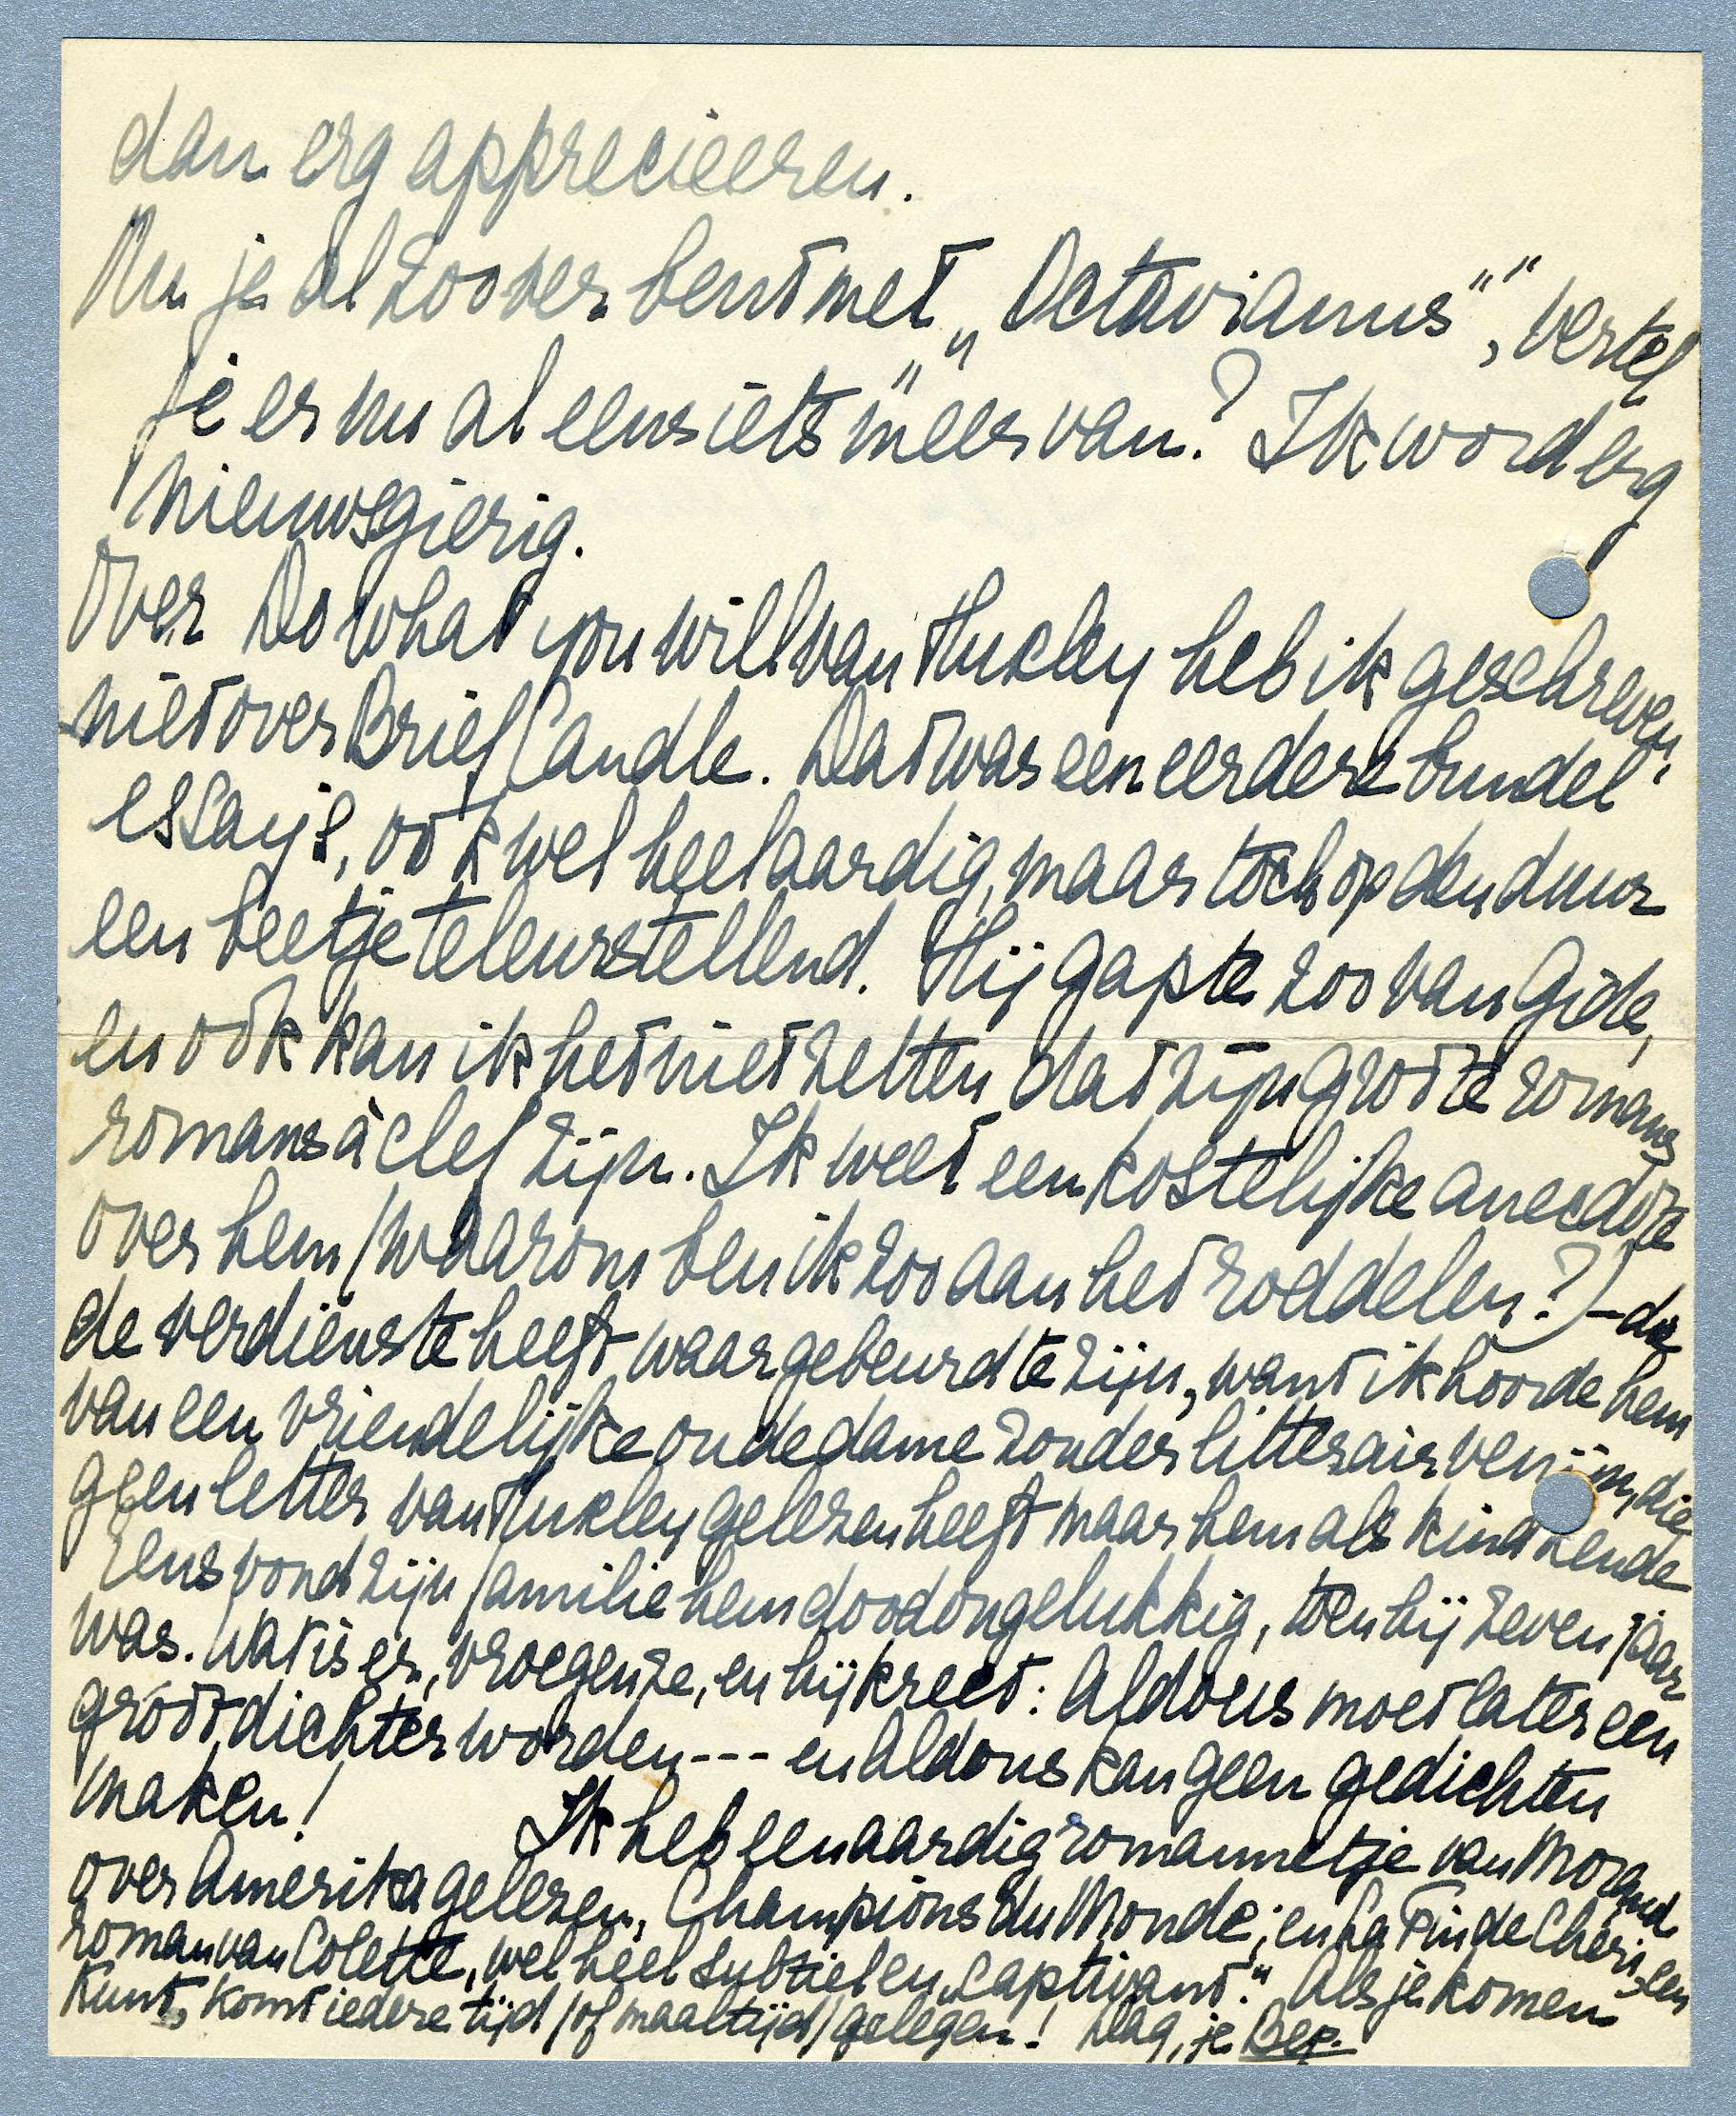 dan erg apprecieeren.
Nu je al zoo ver bent met „Octavianus”, vertel
je er nu al eens iets „meer” van? Ik word erg
nieuwsgierig.
Over Do what you will van Huxley heb ik geschreven,
niet over Brief Candle. Dat was een eerdere bundel
essays, ook wel heel aardig, maar toch op den duur
een beetje teleurstellend. Hij gapte zoo van Gide,
en ook kan ik het niet zetten dat zijn groote romans
romans à clef zijn. Ik weet een kostelijke anecdote
over hem (waarom ben ik zoo aan het roddelen?) – die
de verdienste heeft waar gebeurd te zijn, want ik hoorde hem
van een vriendelijke oude dame zonder litterair venijn, die
geen letter van Huxley gelezen heeft maar hem als kind kende
Eens vond zijn familie hem doodongelukkig, toen hij zeven jaar
was. Wat is er, vroegen ze, en hij kreet: Aldous moet later een
groot dichter worden --- en Aldous kan geen gedichten
maken! Ik heb een aardig romannetje van Morand
over Amerika gelezen, Champions du Monde; en La Fin de Chéri, een
roman van Colette, wel heel subtiel en „captivant”. Als je komen
kunt, komt iedere tijd (of maaltijd) gelegen! Dag, je Bep.